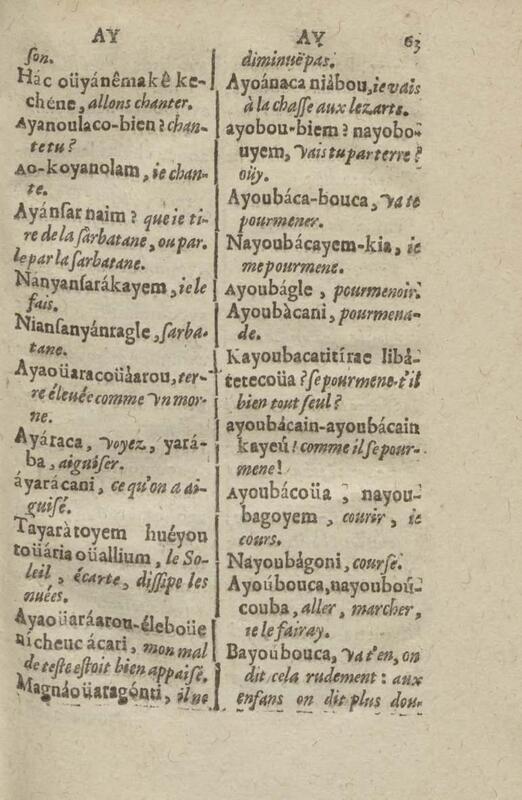 AY
son.
Hác oüyánêmakê ke-
chéne, allons chanter.
Ayanoulaco-bien? chan-
te tu?
Ao-koyanolam, ie chan-
te.
Ayánsar naim? que ie ti-
re de la sarbatane, ou par-
le par la sarbatane.
Nányansarákayem, ie le
fais.
Niansanyánragle, sarba-
tane.
Ayaoüaracoüàarou, ter-
re éleuée comme vn mor-
ne.
Ayáraca, voyez, yará-
ba, aiguiser.
áyarácani, ce qu'on a ai-
guisé.
Tayaràtoyem huéyou
toüária oüallium, le So-
leil, écarte, dissipe les
nuées.
Ayaoüaráarou-éleboüe
nícheuc ácari, mon mal
de teste estoit bien appaisé.
Magnáoüaragónti, il ne
AY 63
diminuë pas.
Ayoánaca niábou, ie vais
à la chasse aux lezarts.
ayobou-biem? nayobo-
uyem, vais tu par terre?
oüy.
Ayoubáca-bouca, va te
pourmener.
Nayoubácayem-kia, ie
me pourmene.
Ayoubágle, pourmenoir.
Ayoubàcani, pourmena-
de.
Kayoubacatitírae libá-
tetecoüa? se pourmene-t'il
bien tout seul?
ayoubácain-ayoubácain
kayeú! comme il se pour-
mene!
Ayoubácoüa, nayou-
bagoyem, courir, ie
cours.
Nayoubágoni, course.
Ayoúbouca, nayouboú-
couba, aller, marcher,
ie le fairay.
Bayoúbouca, va t'en, on
dit cela rudement: aux
enfans on dit plus dou-